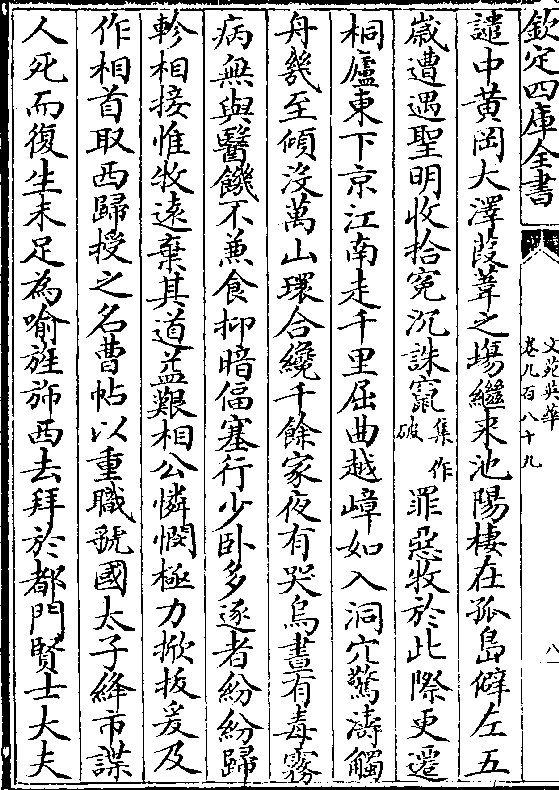 欽定四庫全書
文苑英華
卷九百八十九
八
譴中黄岡大澤葭葦之塲繼来池陽棲在孤島僻左五
歳遭遇聖明收拾寃沉誅竄集作破罪惡牧於此際更遷
桐廬東下京江南走千里屈曲越嶂如入洞穴驚濤觸
舟幾至傾沒萬山環合纔千餘家夜有哭烏晝有毒霧
病無與醫饑不兼食抑暗偪塞行少卧多逐者紛紛歸
軫相接惟牧逺棄其道益艱相公憐憫極力掀拔爰及
作相首取西歸授之名曹帖以重職虢國太子絳市諜
人死而復生未足為喻旌斾西去拜於都門賢士大夫